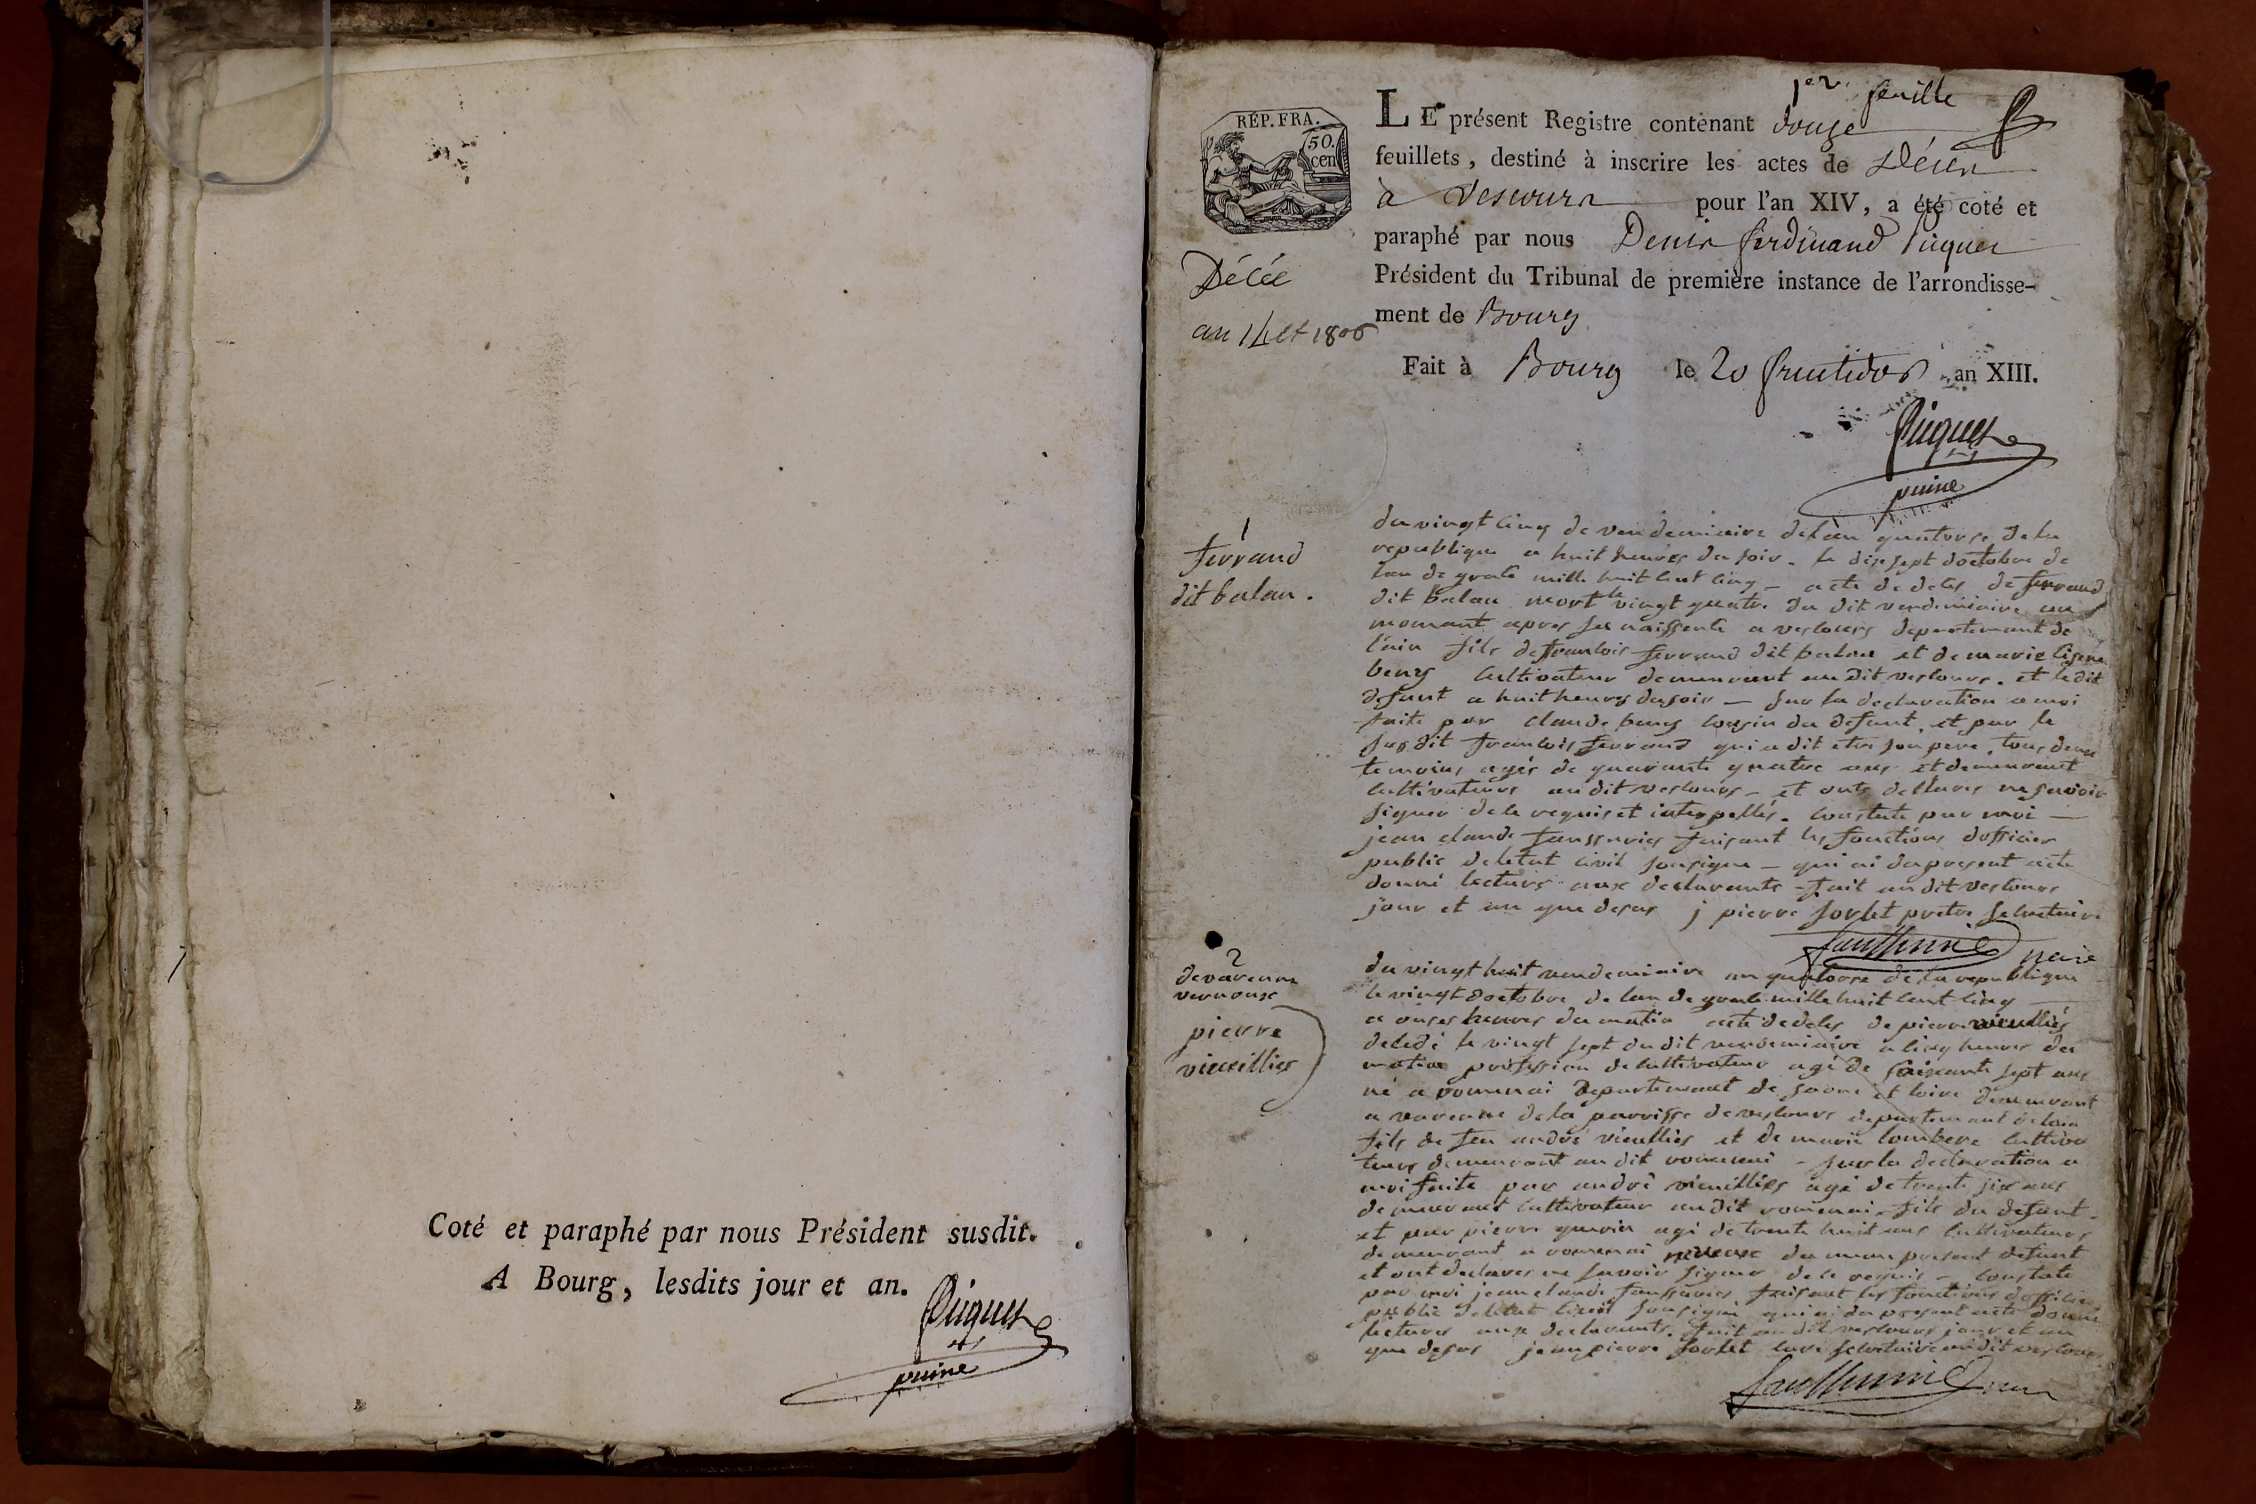 Coté et paraphé par nous Président susdit.
A Bourg, lesdits jour et an.
Piquet
puiné
1er feuille
RÉP. FRA.
50.
cen
LE présent Registre contenant douze
feuillets, destiné à inscrire les actes de Décès
à Vescours pour l'an XIV, a été coté et
paraphé par nous Denis ferdinand Piquet
Président du Tribunal de première instance de l'arrondisse-
ment de Bourg
Fait à Bourg le 20 fructidor an XIII.
Piquet
puiné
Décès
an 14 et 1806
1
ferrand
dit balan.
du vingt cinq de vendemiaire de lan quatorse de la
republique a huit heures du soir. le dix sept doctobre de
lan de grace mille huit cent cinq - acte de deces de ferrand
dit balan mort le vingt quatre du dit vendemiaire un
momant apres sa naissance a vescours departemant de
l'ain fils de francois ferrand dit balan et de marie
beny cultivateur demeurant au dit vescours. et le dit
defunt a huit heures du soir - sur la declaration a moi
faite par claude beny cousin du defunt, et par le
susdit francois ferrand qui a dit etre son pere, tous deux
temoins agés de quarante quatre ans et demeurant
cultivateurs au dit vescours - et onts declares ne savoir
signer de ce requis et interpellés. constaté par moi -
jean claude faussurier faisant les fonctions dofficier
public de letat civil sousigné - qui ai du present acte
donné lecture aux declarants - fait au dit vescours
jour et an que desus j pierre sorlet pretre secretaire
maire
2
devarenne
vernoux
pierre
vieuillies
du vingt huit vendemiaire an quatorse de la republique
le vingt doctobre de lan de grace mille huit cent cinq
a onses heures du matin acte de deces de pierre vieuillies
decedé le vingt sept du dit vendemiaire a cinq heures du
matin profession de cultivateur agé de soixante sept ans
né a romenai departemant de saone et loire demeurant
a varenne de la parroisse de vescours departemant de lain
fils de feu andré vieuillies et de marie combere cultiva
teurs demeurant au dit romenai - sur la declaration a
moi faite par andré vieuillies agé de trente six ans
demeurant cultivateur au dit romenai fils du defunt.
et par pierre agé de trente huit ans cultivateur
demeurant a romenai neveux du present defunt
et ont declares ne savoir signer de ce requis - constaté
par moi jean claude faussurier faisant les fonctions dofficier
public de letat civil sousigné qui ai du present acte donné
lecture aux declarants. fait au dit vescours jour et an
que desus jean pierre sorlet curé secretaire au dit vescours